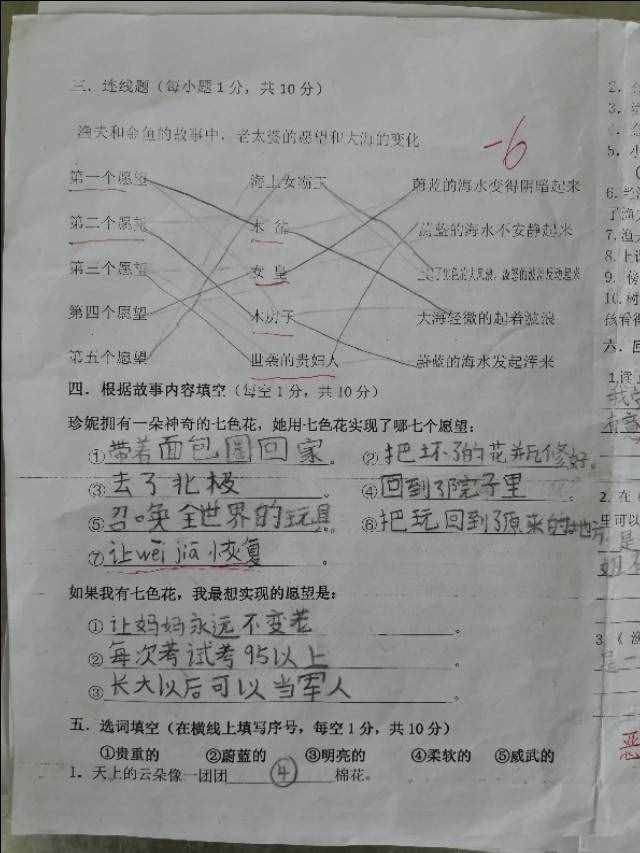 三．连线题（每小题1分，共10分）
渔夫和金鱼的故事中，老太婆的愿望和大海的变化
-6
第一个愿望 海上女霸王 蔚蓝的海水变得阴暗起来
第二个愿望 木盆 蔚蓝的海水不安静起来
第三个愿望 女皇
第四个愿望 木房子 大海轻微的起着波浪
第五个愿望 世袭的贵妇人 蔚蓝的海水发起浑来
四．根据故事内容填空（每空1分，共10分）
珍妮拥有一朵神奇的七色花，她用七色花实现了哪七个愿望：
①带着面包圈回家。 ②把坏了的花瓶修好。
③去了北极。 ④回到了院子里。
⑤召唤全世界的玩具。 ⑥把玩回到了原来的地方
⑦让wei jia恢复。
如果我有七色花，我最想实现的愿望是：
①让妈妈永远不变老。
②每次考试考95以上。
③长大以后可以当军人。
五．选词填空（在横线上填写序号，每空1分，共10分）
①贵重的 ②蔚蓝的 ③明亮的 ④柔软的 ⑤威武的
1．天上的云朵像一团团④棉花。
2．
3．
5．小
6．
7．渔
8．上
9．
10．树
六．回
1．读
2．在
里可以
是
3．《渔
是一